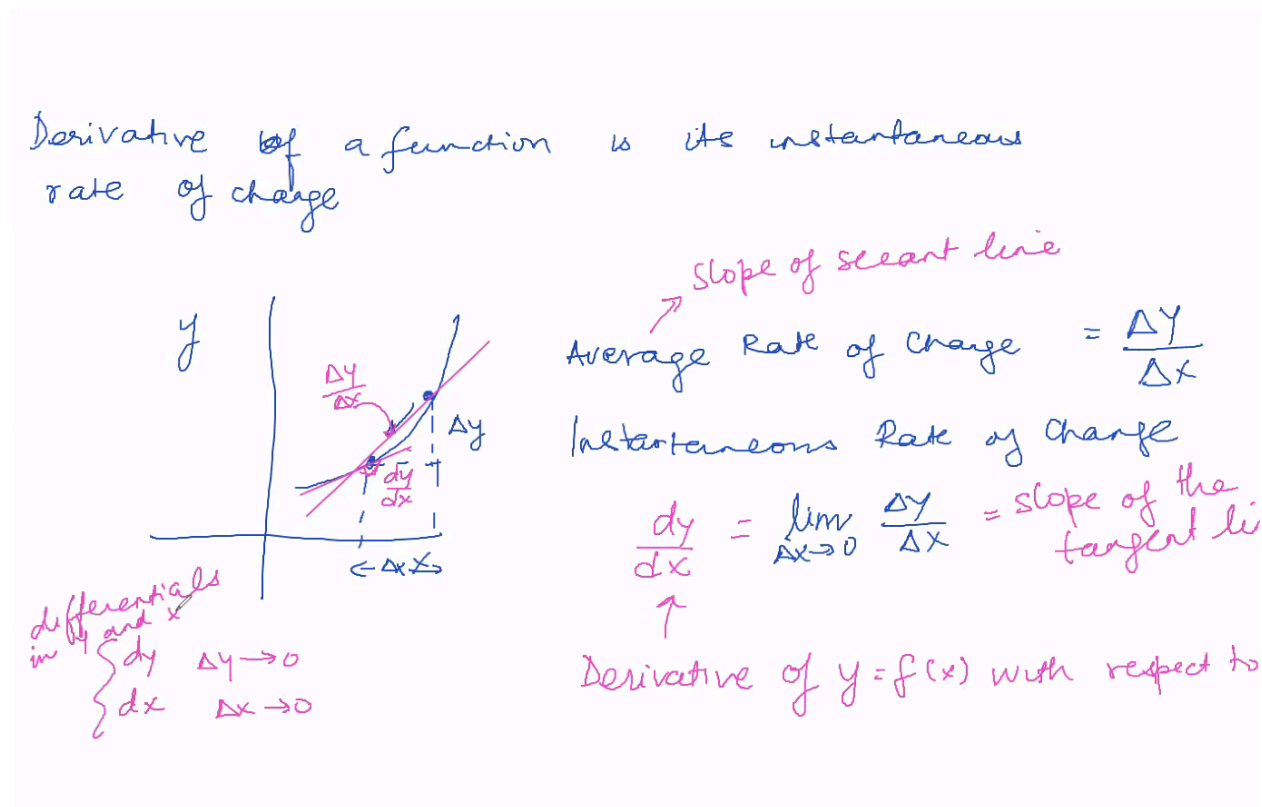 Derivative of a function is its instantaneous
rate of change
Slope of secant line
Average Rate of Change = ΔY/ΔX
Instantaneous Rate of Change
dy/dx = lim ΔX→0 ΔY/ΔX = slope of the
tangent li
Derivative of y = f(x) with respect to
y
Δy/Δx
Δy
dy/dx
← Δx →
differentials
in y and x
dy Δy→0
dx Δx→0